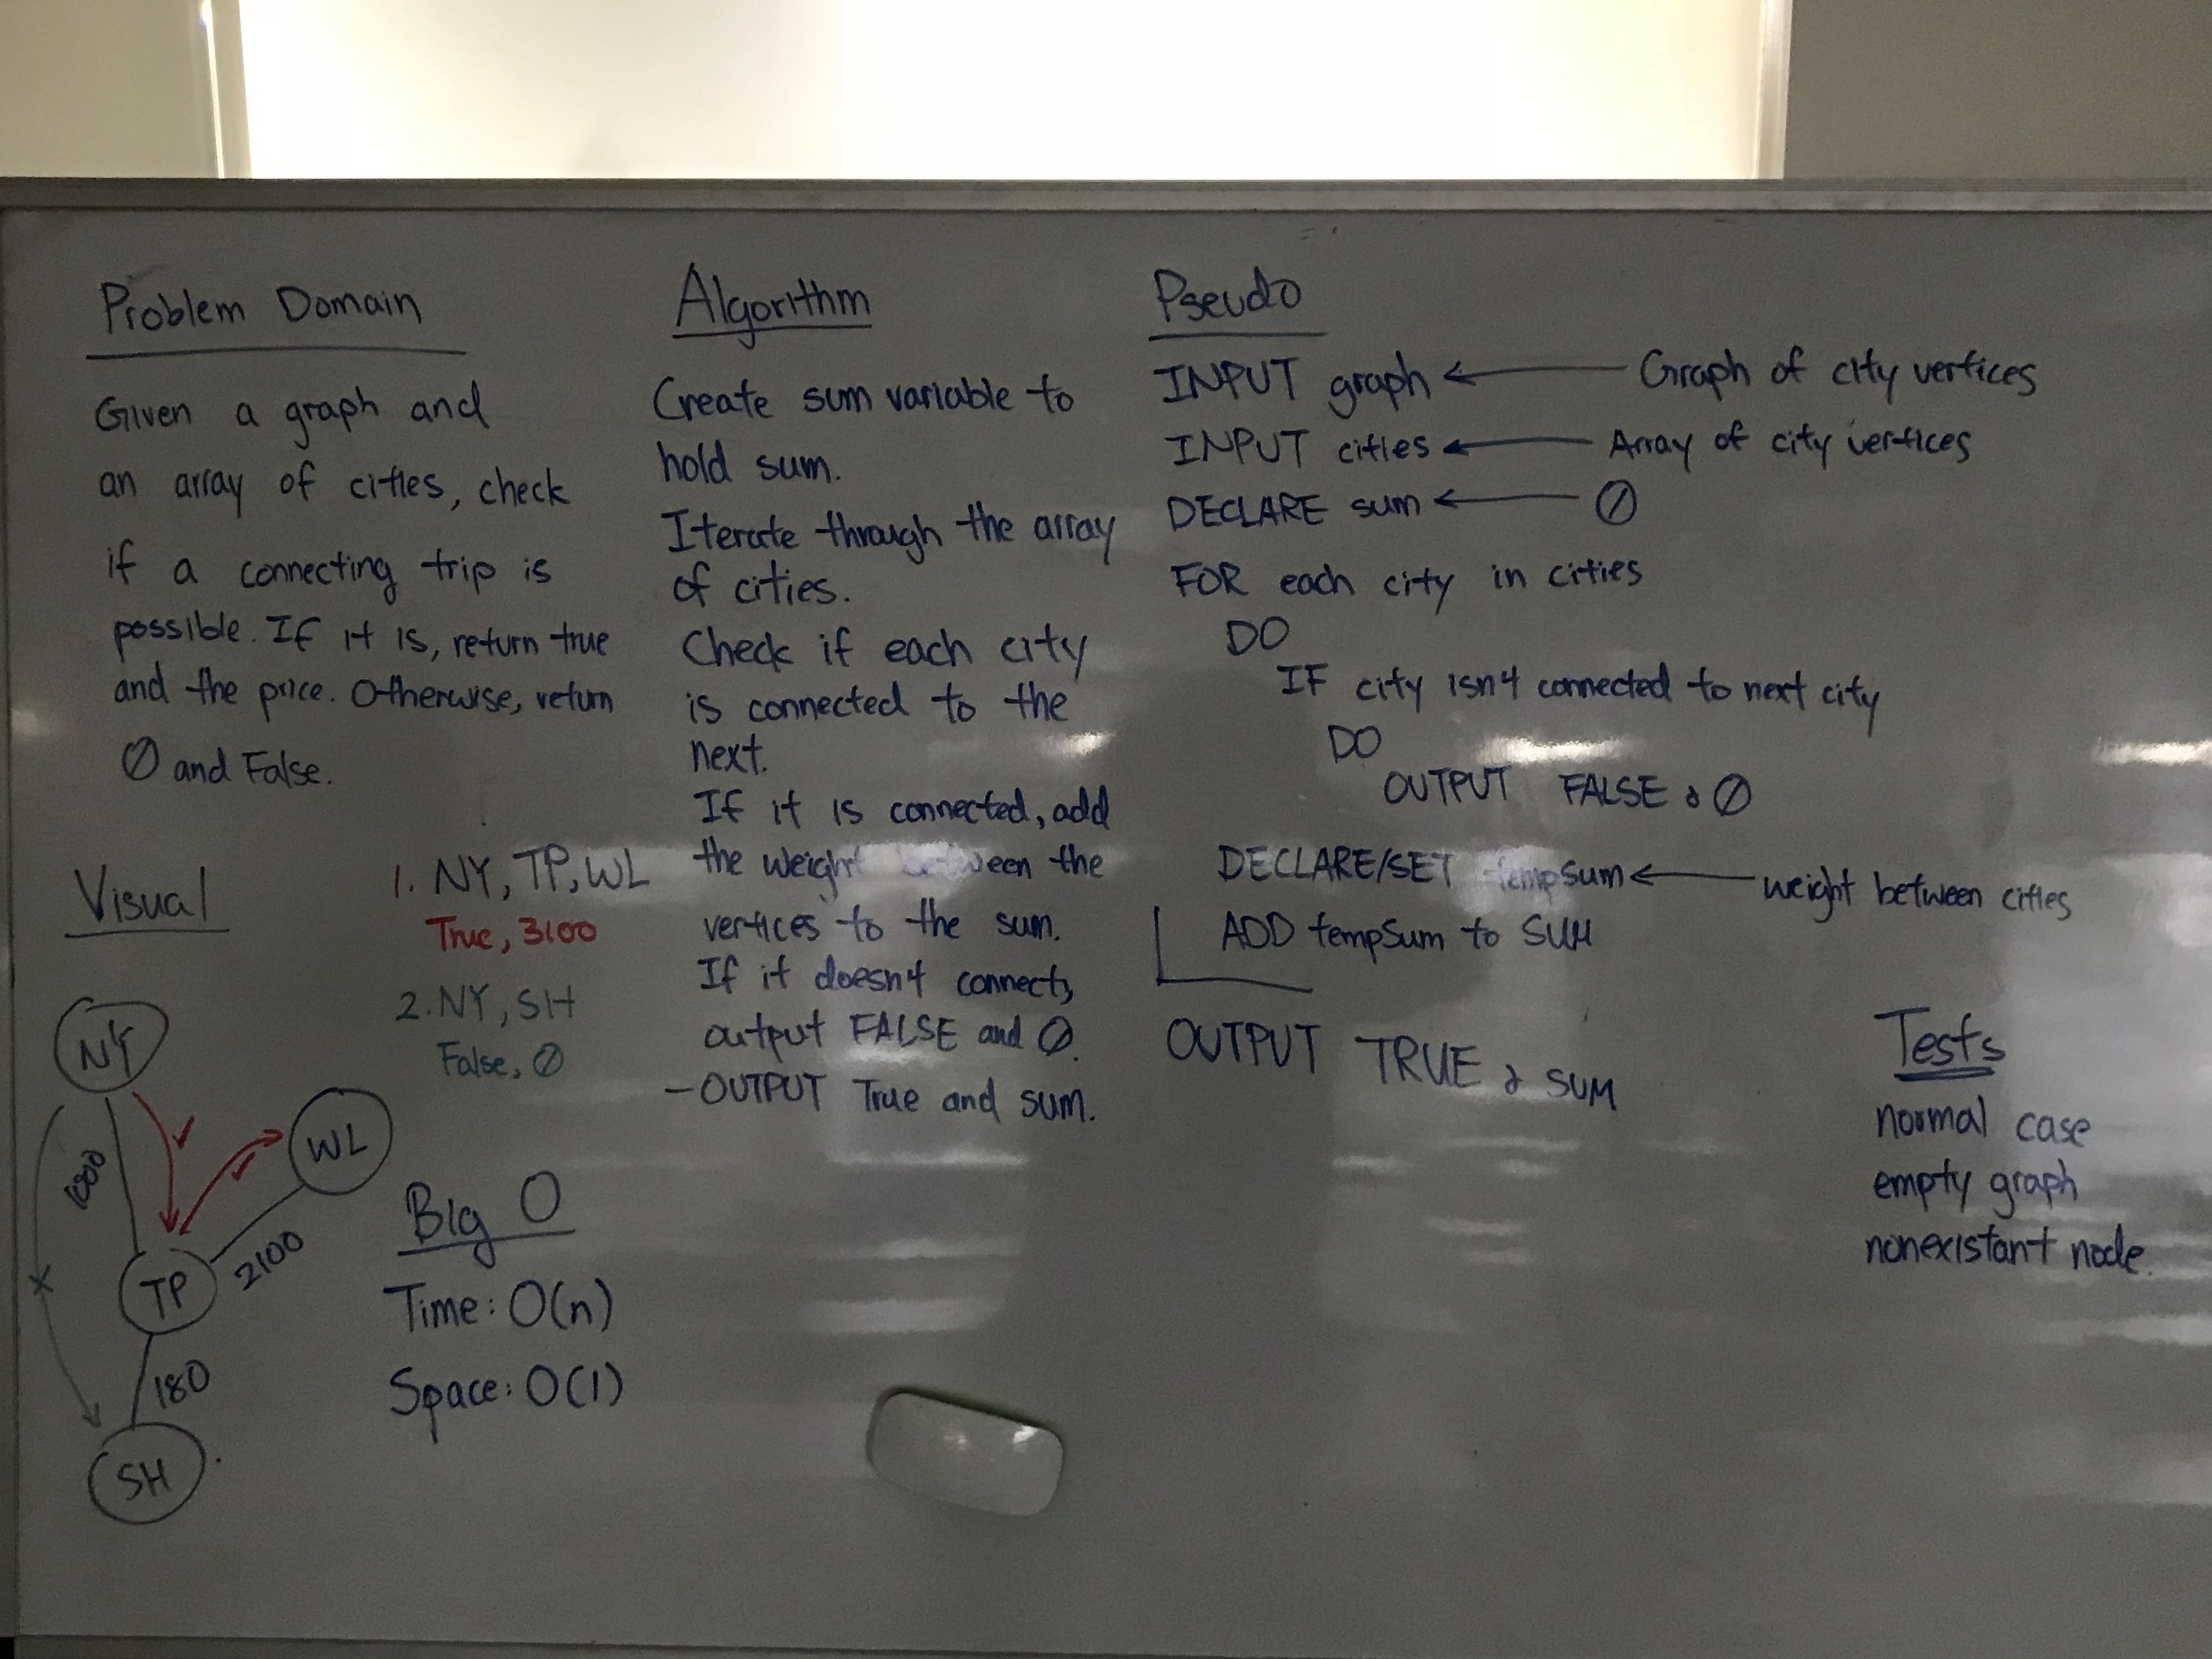 Problem Domain
Given a graph and
an array of cities, check
if a connecting trip is
possible. If it is, return true
and the price. Otherwise, return
0 and False.
Visual
1. NY, TP, WL
True, 3100
2. NY, SH
False, 0
NY
WL
TP
2100
180
SH
Big O
Time: O(n)
Space: O(1)
Algorithm
Create sum variable to
hold sum.
Iterate through the array
of cities.
Check if each city
is connected to the
next.
If it is connected, add
the weight between the
vertices to the sum.
If it doesn't connect,
output FALSE and 0.
- OUTPUT True and sum.
Pseudo
INPUT graph ← Graph of city vertices
INPUT cities ← Array of city vertices
DECLARE sum ← 0
FOR each city in cities
DO
IF city isn't connected to next city
DO
OUTPUT FALSE & 0
DECLARE/SET tempSum ← weight between cities
ADD tempSum to SUM
OUTPUT TRUE & SUM
Tests
normal case
empty graph
nonexistant node.